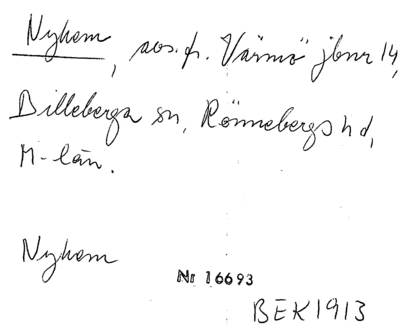 Nyhem, avs. fr. Värmö jbnr 14,
Billeberga sn, Rönnebergs hd,
M-län.
Nyhem
Nr 16693
BEK 1913